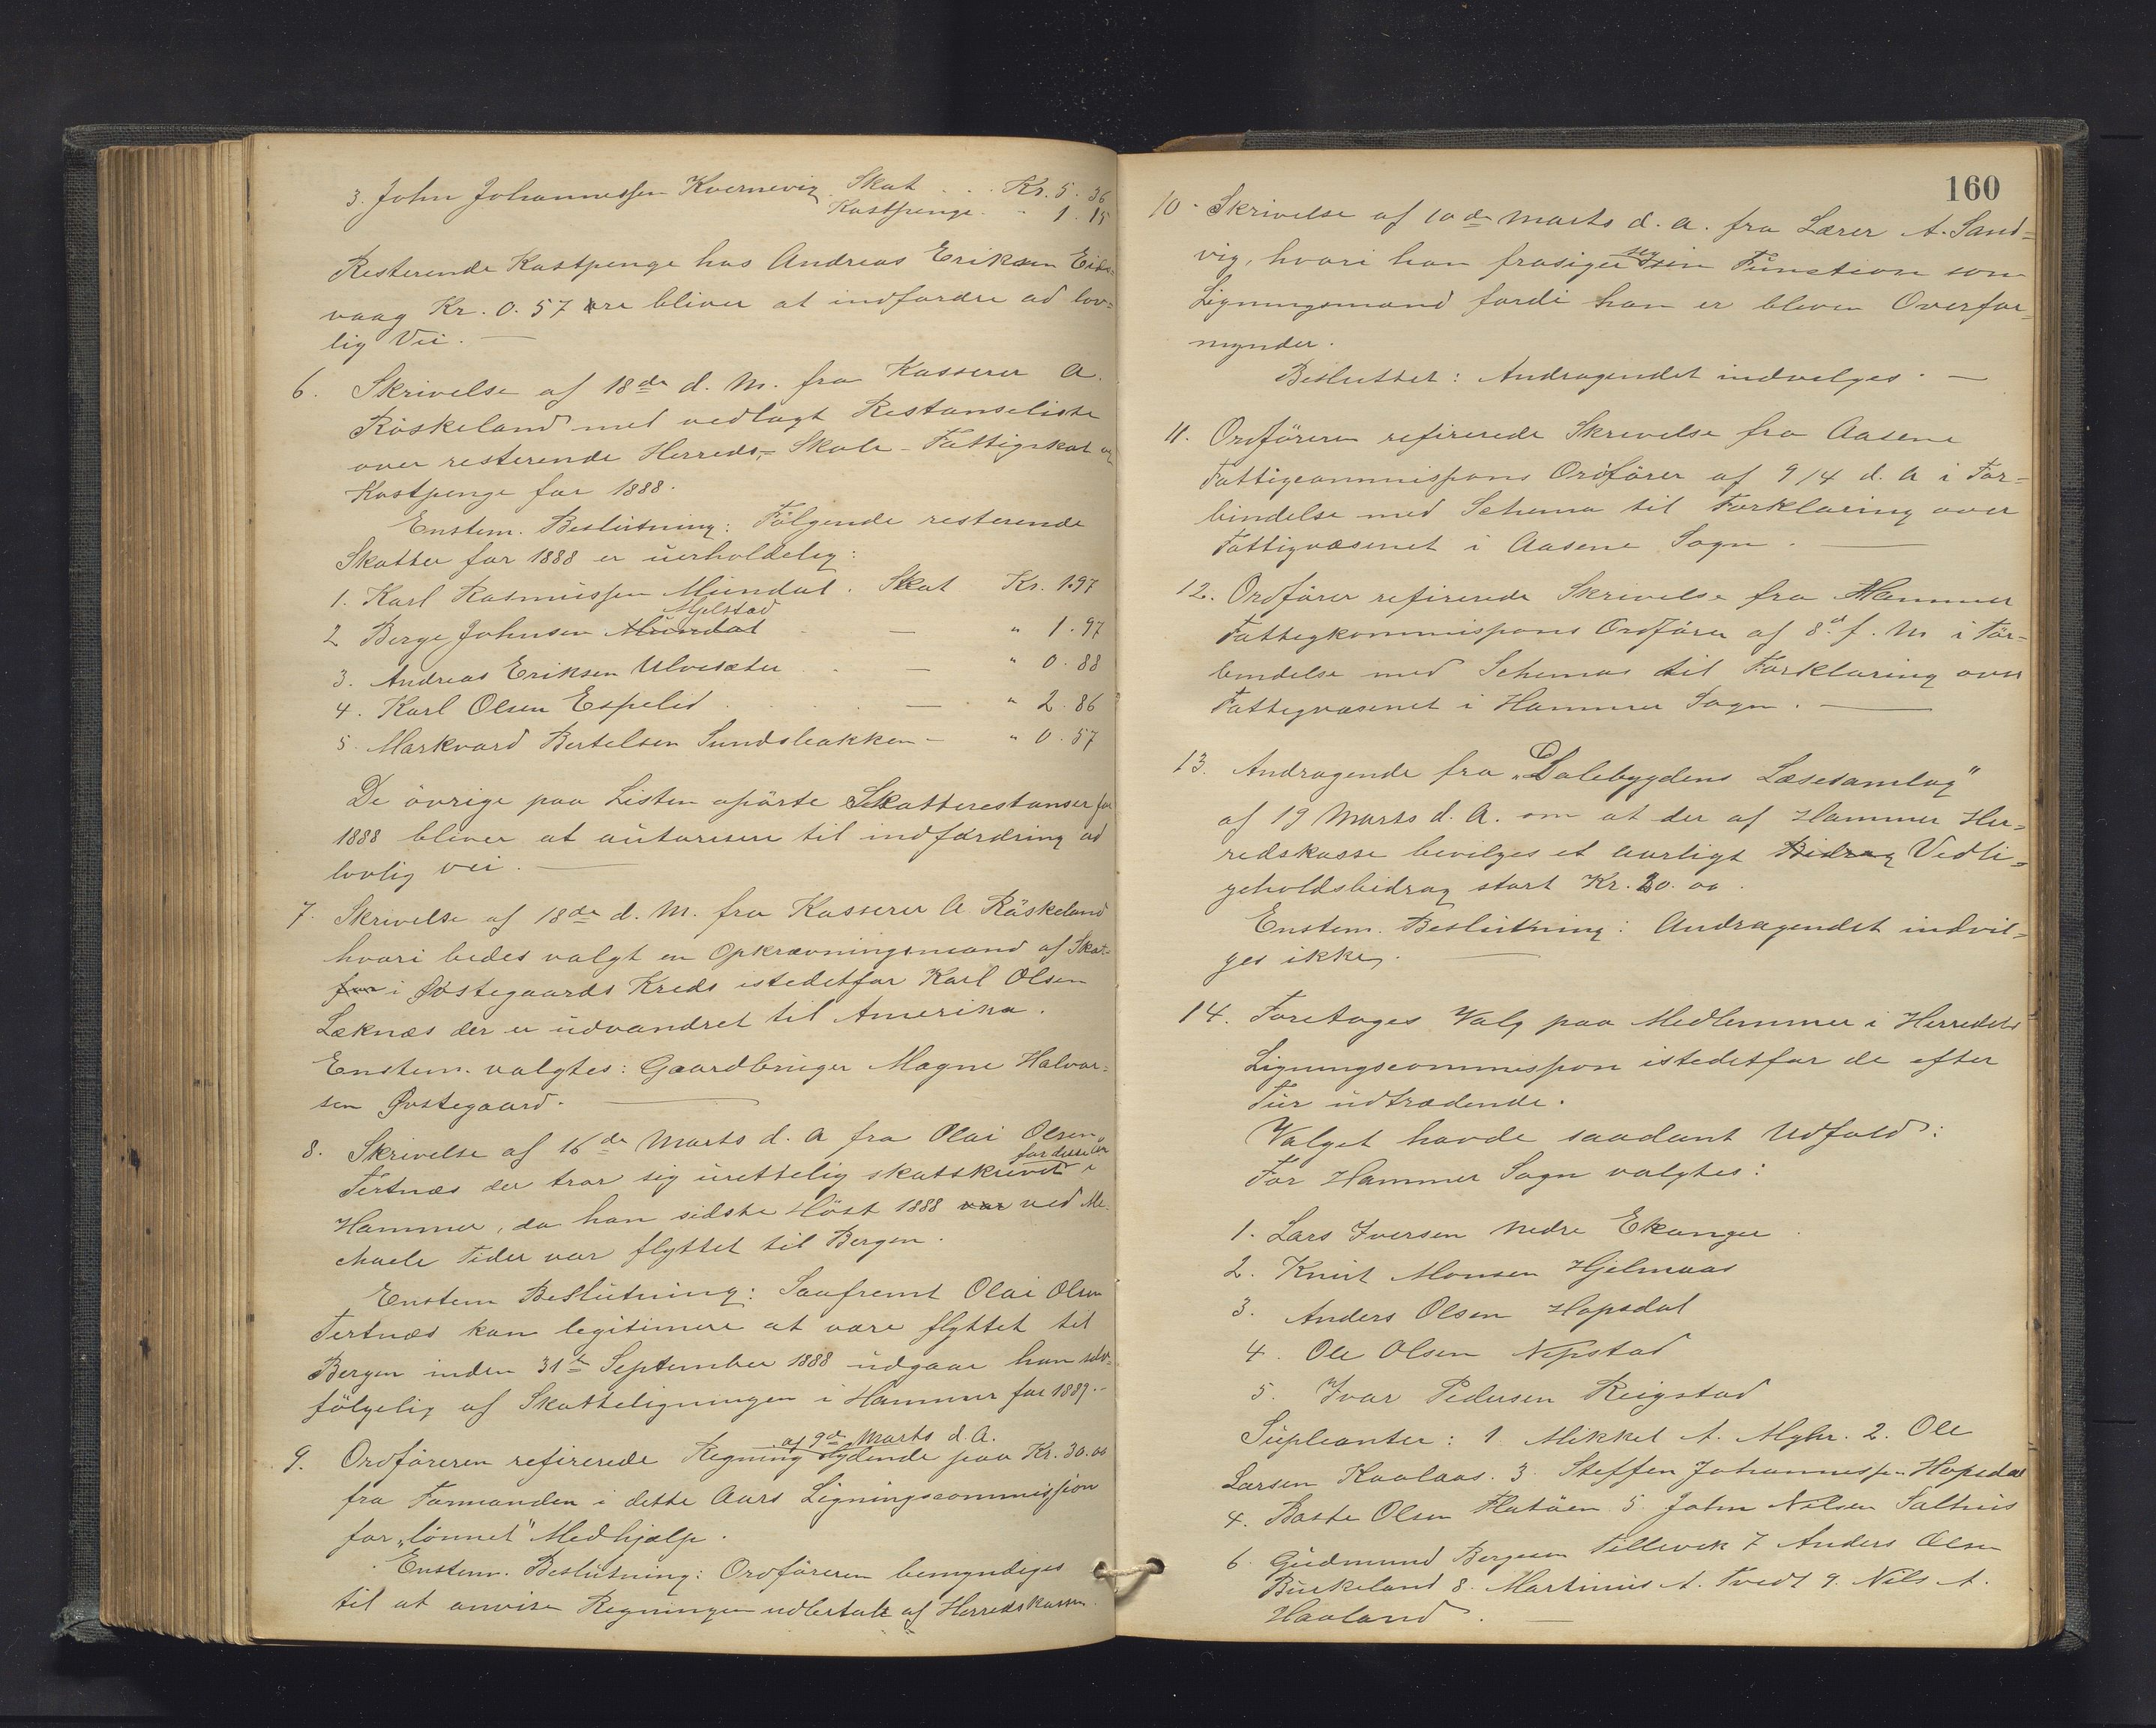 3. John Johannessen Kvernevig Skat . . Kr. 5. 36
Kostpenge. " 1. 15
Resterende Kostpenge hos Andreas Eriksen Eids-
vaag Kr. 0. 57 øre bliver at indfordre ad lov-
lig Vei. —
6. Skrivelse af 18de d. M. fra Kasserer A.
Röskeland med vedlagt Restanseliste
over resterende Herreds-, Skole- Fattigskat og
Kostpenge for 1888.
Enstem. Beslutning: Fölgende resterende
Skatter for 1888 er uerholdelig:
1. Karl Rasmussen Mundal. Skat Kr. 1.97
Mjelstad
2 Berge Johnsen Mundal . — " 1. 97
3. Andreas Eriksen Ulvesæter . — " 0. 88
4. Karl Olsen Espelid . . . — " 2. 86
5. Markvard Bertelsen Sundsbakken — " 0. 57
De övrige paa Listen opförte Skatterestanser for
1888 bliver at autorisere til indfordring ad
lovlig vei. —
7. Skrivelse af 18de d. M. fra Kasserer A Röskeland
hvori bedes valgt en Opkrævningsmand af Skat-
for i Østegaards Kreds istedetfor Karl Olsen
Læknæs der er udvandret til Amerika.
Enstem. valgtes: Gaardbruger Magne Halvor-
sen Østegaard. —
8. Skrivelse af 16de Marts d. A fra Olai Olsen
for dette Aar
Tertnæs der tror sig urettelig skatskrevet i
Hammer, da han sidste Höst 1888 var ved Me-
chaeli Tider var flyttet til Bergen.
Enstem Beslutning: Saafremt Olai Olsen
Tertnæs kan legitimere at være flyttet til
Bergen inden 31te September 1888 udgaar han selv-
fölgelig af Skatteligningen i Hammer for 1889. -
af 9de Marts d. A.
9. Ordföreren refirerede Regning lydende paa Kr. 30.00
fra Formanden i dette Aars Ligningscommission
for „lönnet" Medhjælp.
Enstem. Beslutning: Ordföreren bemyndiges
til at anvise Regningen udbetalt af Herredskassen.
160
10. Skrivelse af 10de Marts d. a. fra Lærer A. Sand-
seg
vig, hvori han frasiger sin Function som
Ligningsmand fordi han er bleven Overfor-
mynder.
Besluttet: Andragendet indvelges. —
11. Ordföreren refirerede Skrivelse fra Aasene
Fattigcommissions Ordförer af 9/4 d. A i For-
bindelse med Schema til Forklaring over
Fattigvæsenet i Aasene Sogn. —
12. Ordförer refirerede Skrivelse fra Hammer
Fattigkommissions Ordförer af 8d. f. M i For-
bindelse med Schemas til Forklaring over
Fattigvæsenet i Hammer Sogn. —
13. Andragende fra „Dalebygdens Læsesamlag"
af 19 Marts d. A. om at der af Hammer Her-
redskasse bevilges et aarligt Bidrag Vedli-
geholdsbidrag stort Kr. 20.00.
Enstem. Beslutning: Andragendet indvil-
ges ikke. —
14. Foretoges Valg paa Medlemmer i Herredets
Ligningscommission istedetfor de efter
Tur udtrædende.
Valget havde saadant Udfald:
For Hammer Sogn valgtes:
1. Lars Iversen Nedre Ekanger
2. Knut Monsen Hjelmaas
3. Anders Olsen Hopsdal
4. Ole Olsen Nepstad
5. Ivar Pedersen Reigstad
Supleanter: 1 Mikkel A. Myhr. 2. Ole
Larsen Kaalaas. 3. Steffen Johannessen Hopsdal
4. Baste Olsen Flatöen 5. John Nilsen Salhus
6. Gudmund Bergesen Tellevik 7 Anders Olsen
Burkeland 8. Martinus A. Tvedt 9. Nils A.
Haaland. —